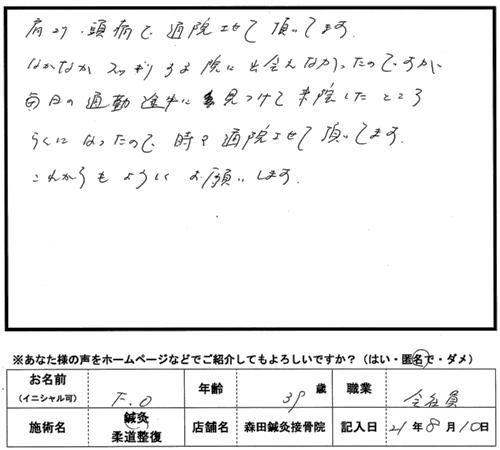 肩コリ、頭痛で通院させて頂いてます。
なかなかスッキリする院に出会えなかったのですが、
毎日の通勤途中に見つけて来院したところ
らくになったので、時々通院させて頂いてます。
これからもよろしくお願いします。
※あなた様の声をホームページなどでご紹介してもよろしいですか?(はい・匿名で・ダメ)
お名前 (イニシャル可) F.O 年齢 39 歳 職業 会社員
施術名 鍼灸 柔道整復 店舗名 森田鍼灸接骨院 記入日 21年8月10日